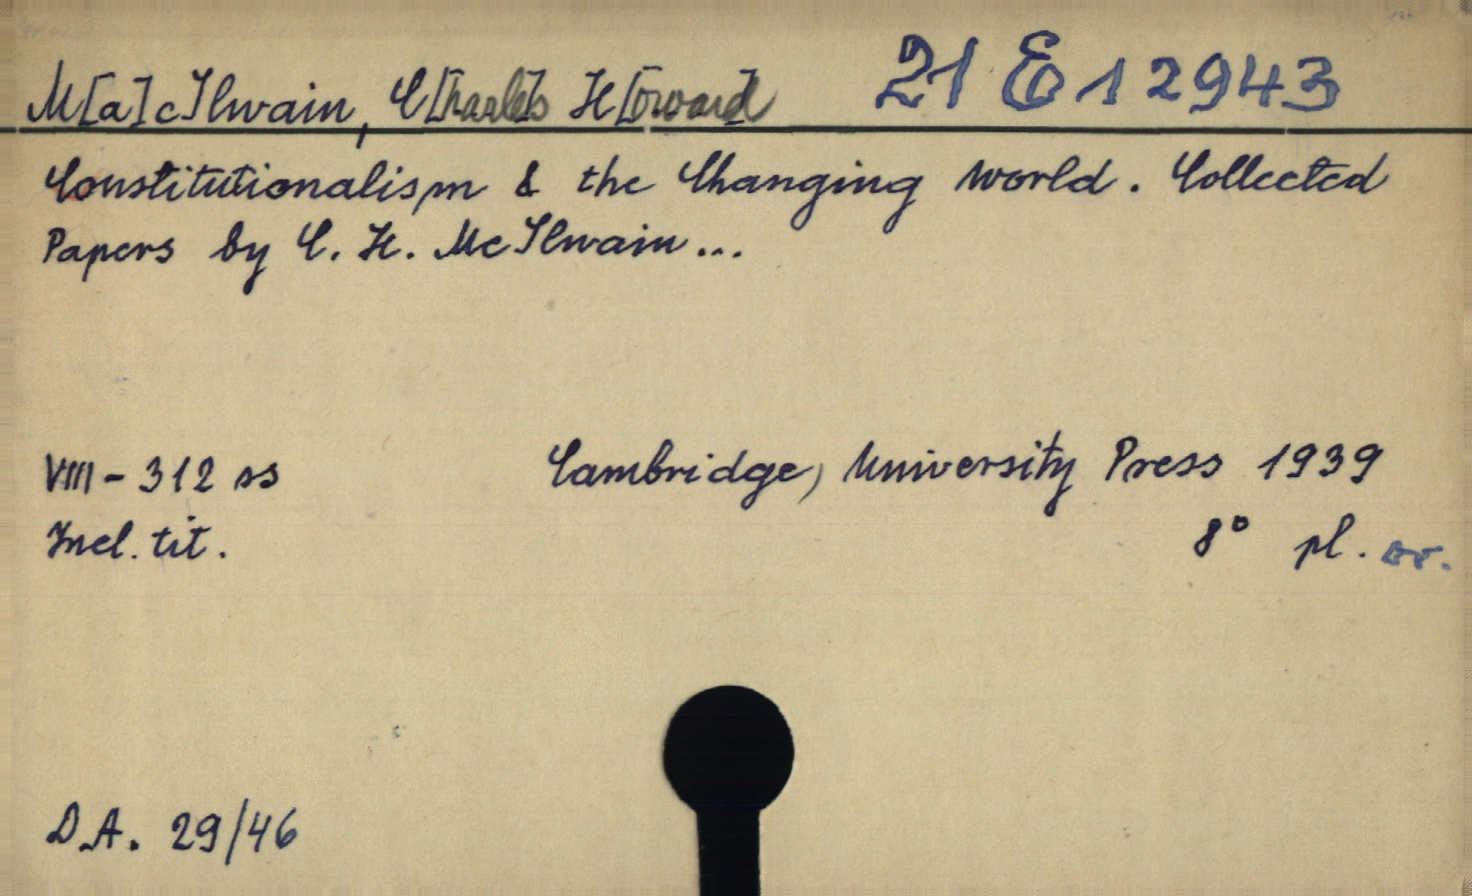 M[a]cIlwain, C[harles] H[oward] 21 E 12943
Constitutionalism & the Changing World. Collected
Papers by C. H. McIlwain...
VIII - 312 ss Cambridge, University Press 1939
Incl. tit. 8° pl. or.
D.A. 29/46